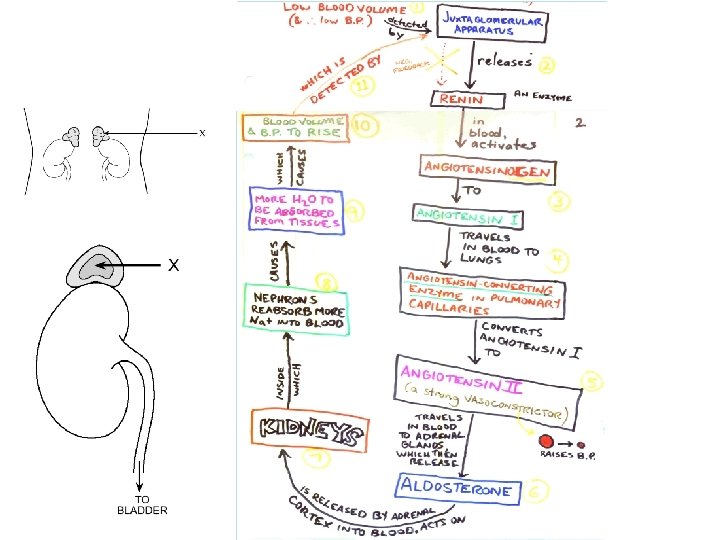 X
X
TO
BLADDER
LOW BLOOD VOLUME
(& ∴ low B.P.)
1
detected
by
JUXTAGLOMERULAR
APPARATUS
releases
2
NEG.
FEEDBACK
RENIN
AN ENZYME
2
in
blood,
activates
ANGIOTENSINOGEN
TO
3
ANGIOTENSIN I
TRAVELS
IN BLOOD TO
LUNGS
4
ANGIOTENSIN-CONVERTING
ENZYME IN PULMONARY
CAPILLARIES
CONVERTS
ANGIOTENSIN I
TO
5
ANGIOTENSIN II
(a strong VASOCONSTRICTOR)
RAISES B.P.
TRAVELS
IN BLOOD
TO ADRENAL
GLANDS,
WHICH THEN
RELEASE
ALDOSTERONE
6
IS RELEASED BY ADRENAL
CORTEX INTO BLOOD, ACTS ON
KIDNEYS
7
INSIDE
WHICH
8
NEPHRONS
REABSORB MORE
Na+ INTO BLOOD
CAUSES
MORE H2O TO
BE ABSORBED
FROM TISSUES
9
WHICH
CAUSES
BLOOD VOLUME
& B.P. TO RISE
10
WHICH IS
DETECTED BY
11